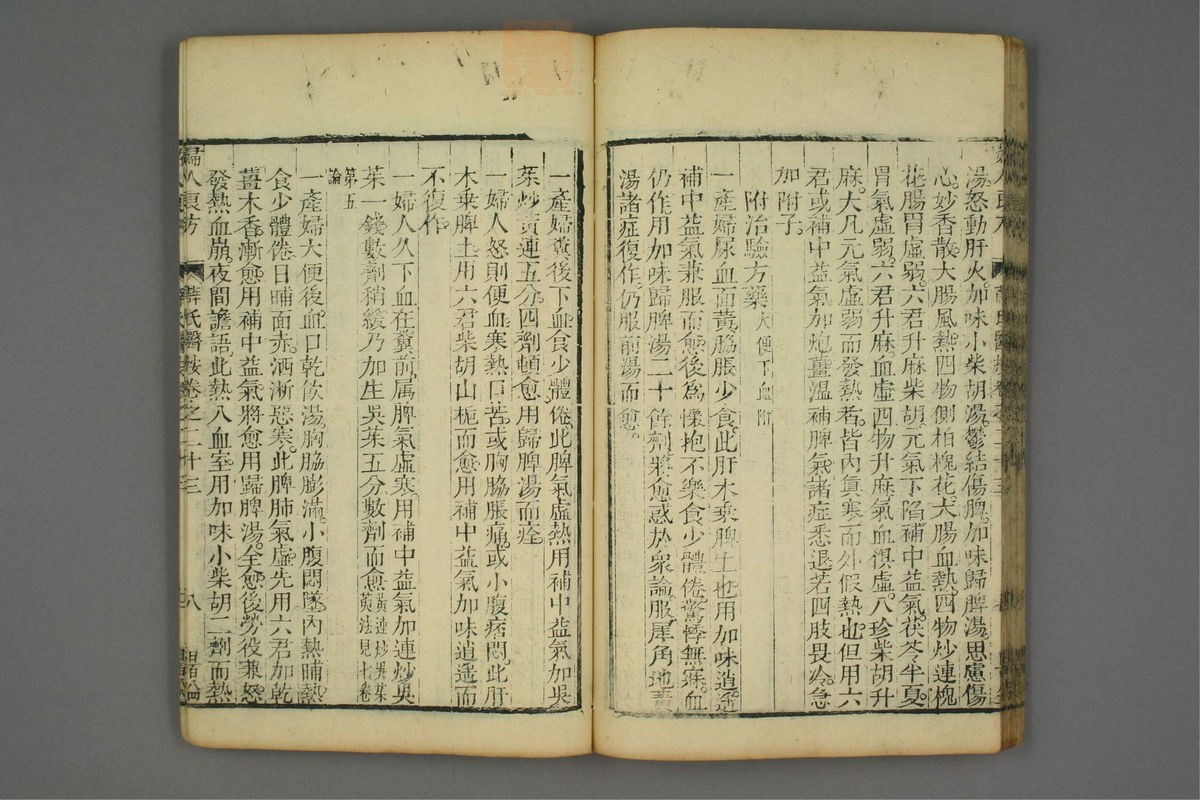 湯忿動肝火加味小柴胡湯鬱結傷脾加味歸脾湯思慮傷
心妙香散大腸風熱四物側柏槐花大腸血熱四物炒連槐
花腸胃虛弱六君升麻柴胡元氣下陷補中益氣茯苓半夏
胃氣虛弱六君升麻血虛四物升麻氣血俱虛八珍柴胡升
麻大凡元氣虛弱而發熱者皆內眞寒而外假熱也但用六
君或補中益氣加炮薑溫補脾氣諸症悉退若四肢畏冷急
加附子
附治驗方藥大便下血附
一產婦尿血面黃脇脹少食此肝木乘脾土也用加味逍遥
補中益氣兼服而愈後爲懷抱不樂食少體倦驚悸無寐血
仍作用加味歸脾湯二十餘劑將愈惑於衆論服犀角地黃
湯諸症復作仍服前湯而愈
一產婦糞後下血食少體倦此脾氣虛熱用補中益氣加吳
茱炒黃連五分四劑頓愈用歸脾湯而痊
一婦人怒則便血寒熱口苦或胸脇脹痛或小腹痞悶此肝
木乘脾土用六君柴胡山梔而愈用補中益氣加味逍遥而
不復作
一婦人久下血在糞前属脾氣虛寒用補中益氣加連炒吳
茱一錢數劑稍緩乃加生吳茱五分數劑而愈黃連炒吳茱萸法見七卷
第五論
一產婦大便後血口乾飲湯胸脇膨滿小腹悶墜內熱晡熱
食少體倦日晡面赤洒淅惡寒此脾肺氣虛先用六君加乾
薑木香漸愈用補中益氣將愈用歸脾湯全愈後勞役兼怒
發熱血崩夜間譫語此熱入血室用加味小柴胡二劑而熱
婦人良方 薛氏醫按卷之二十三 八